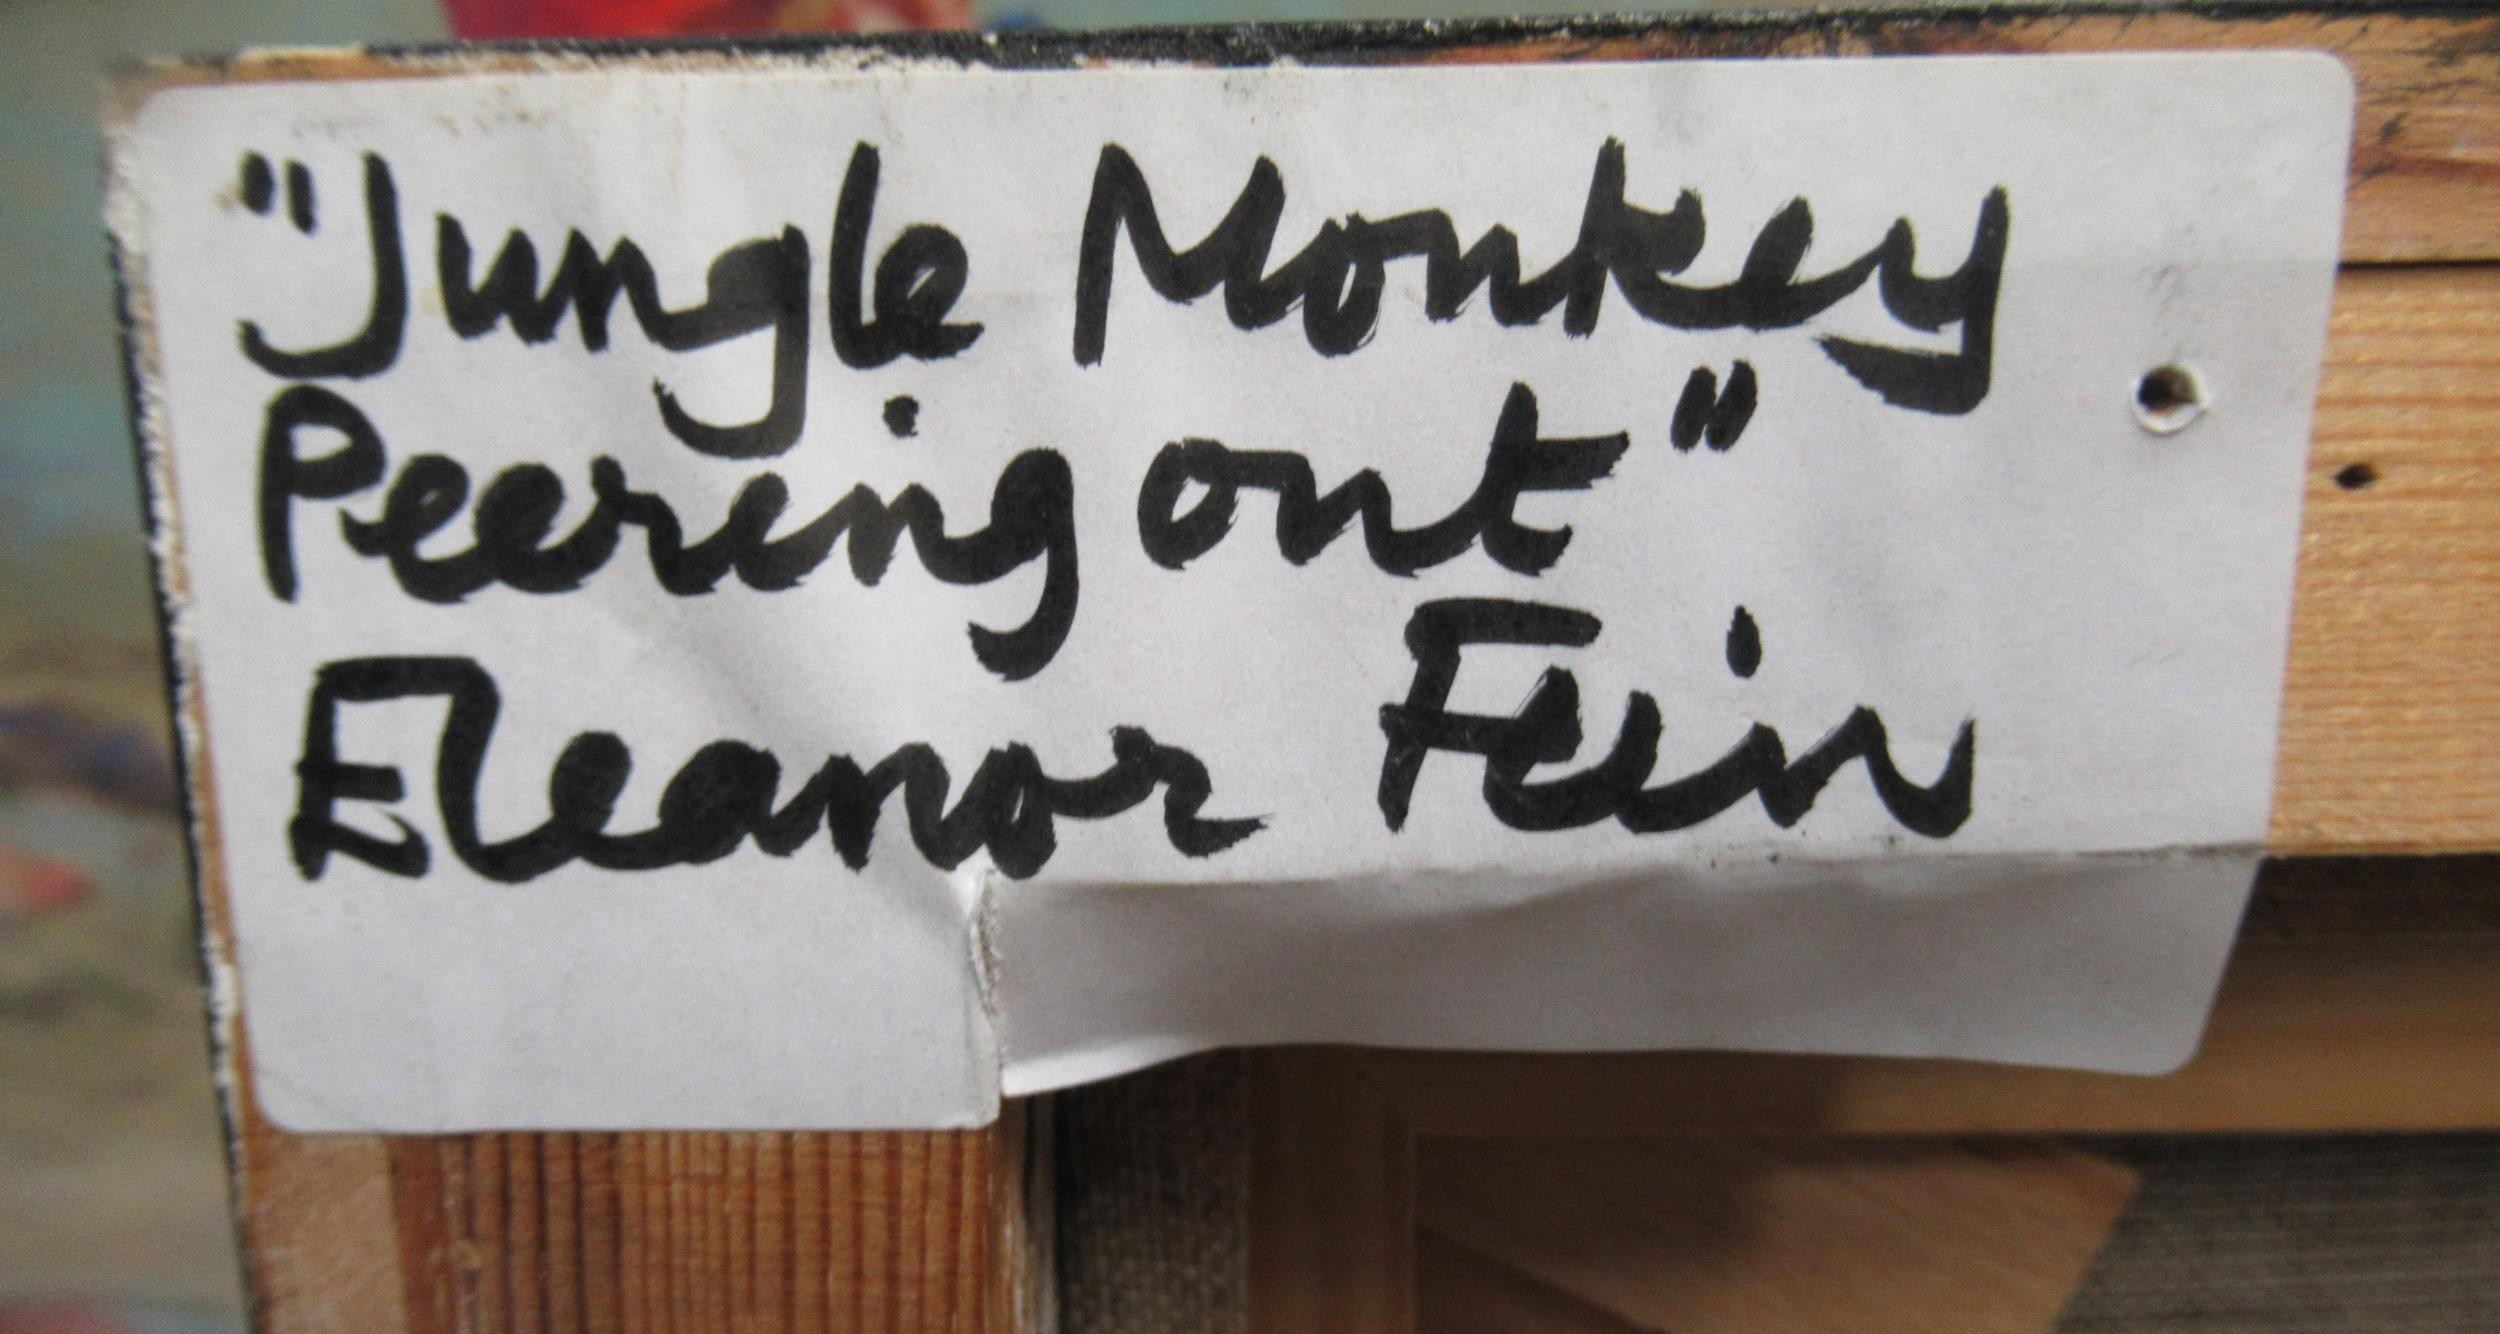 "Jungle Monkey
Peering out"
Eleanor Fein